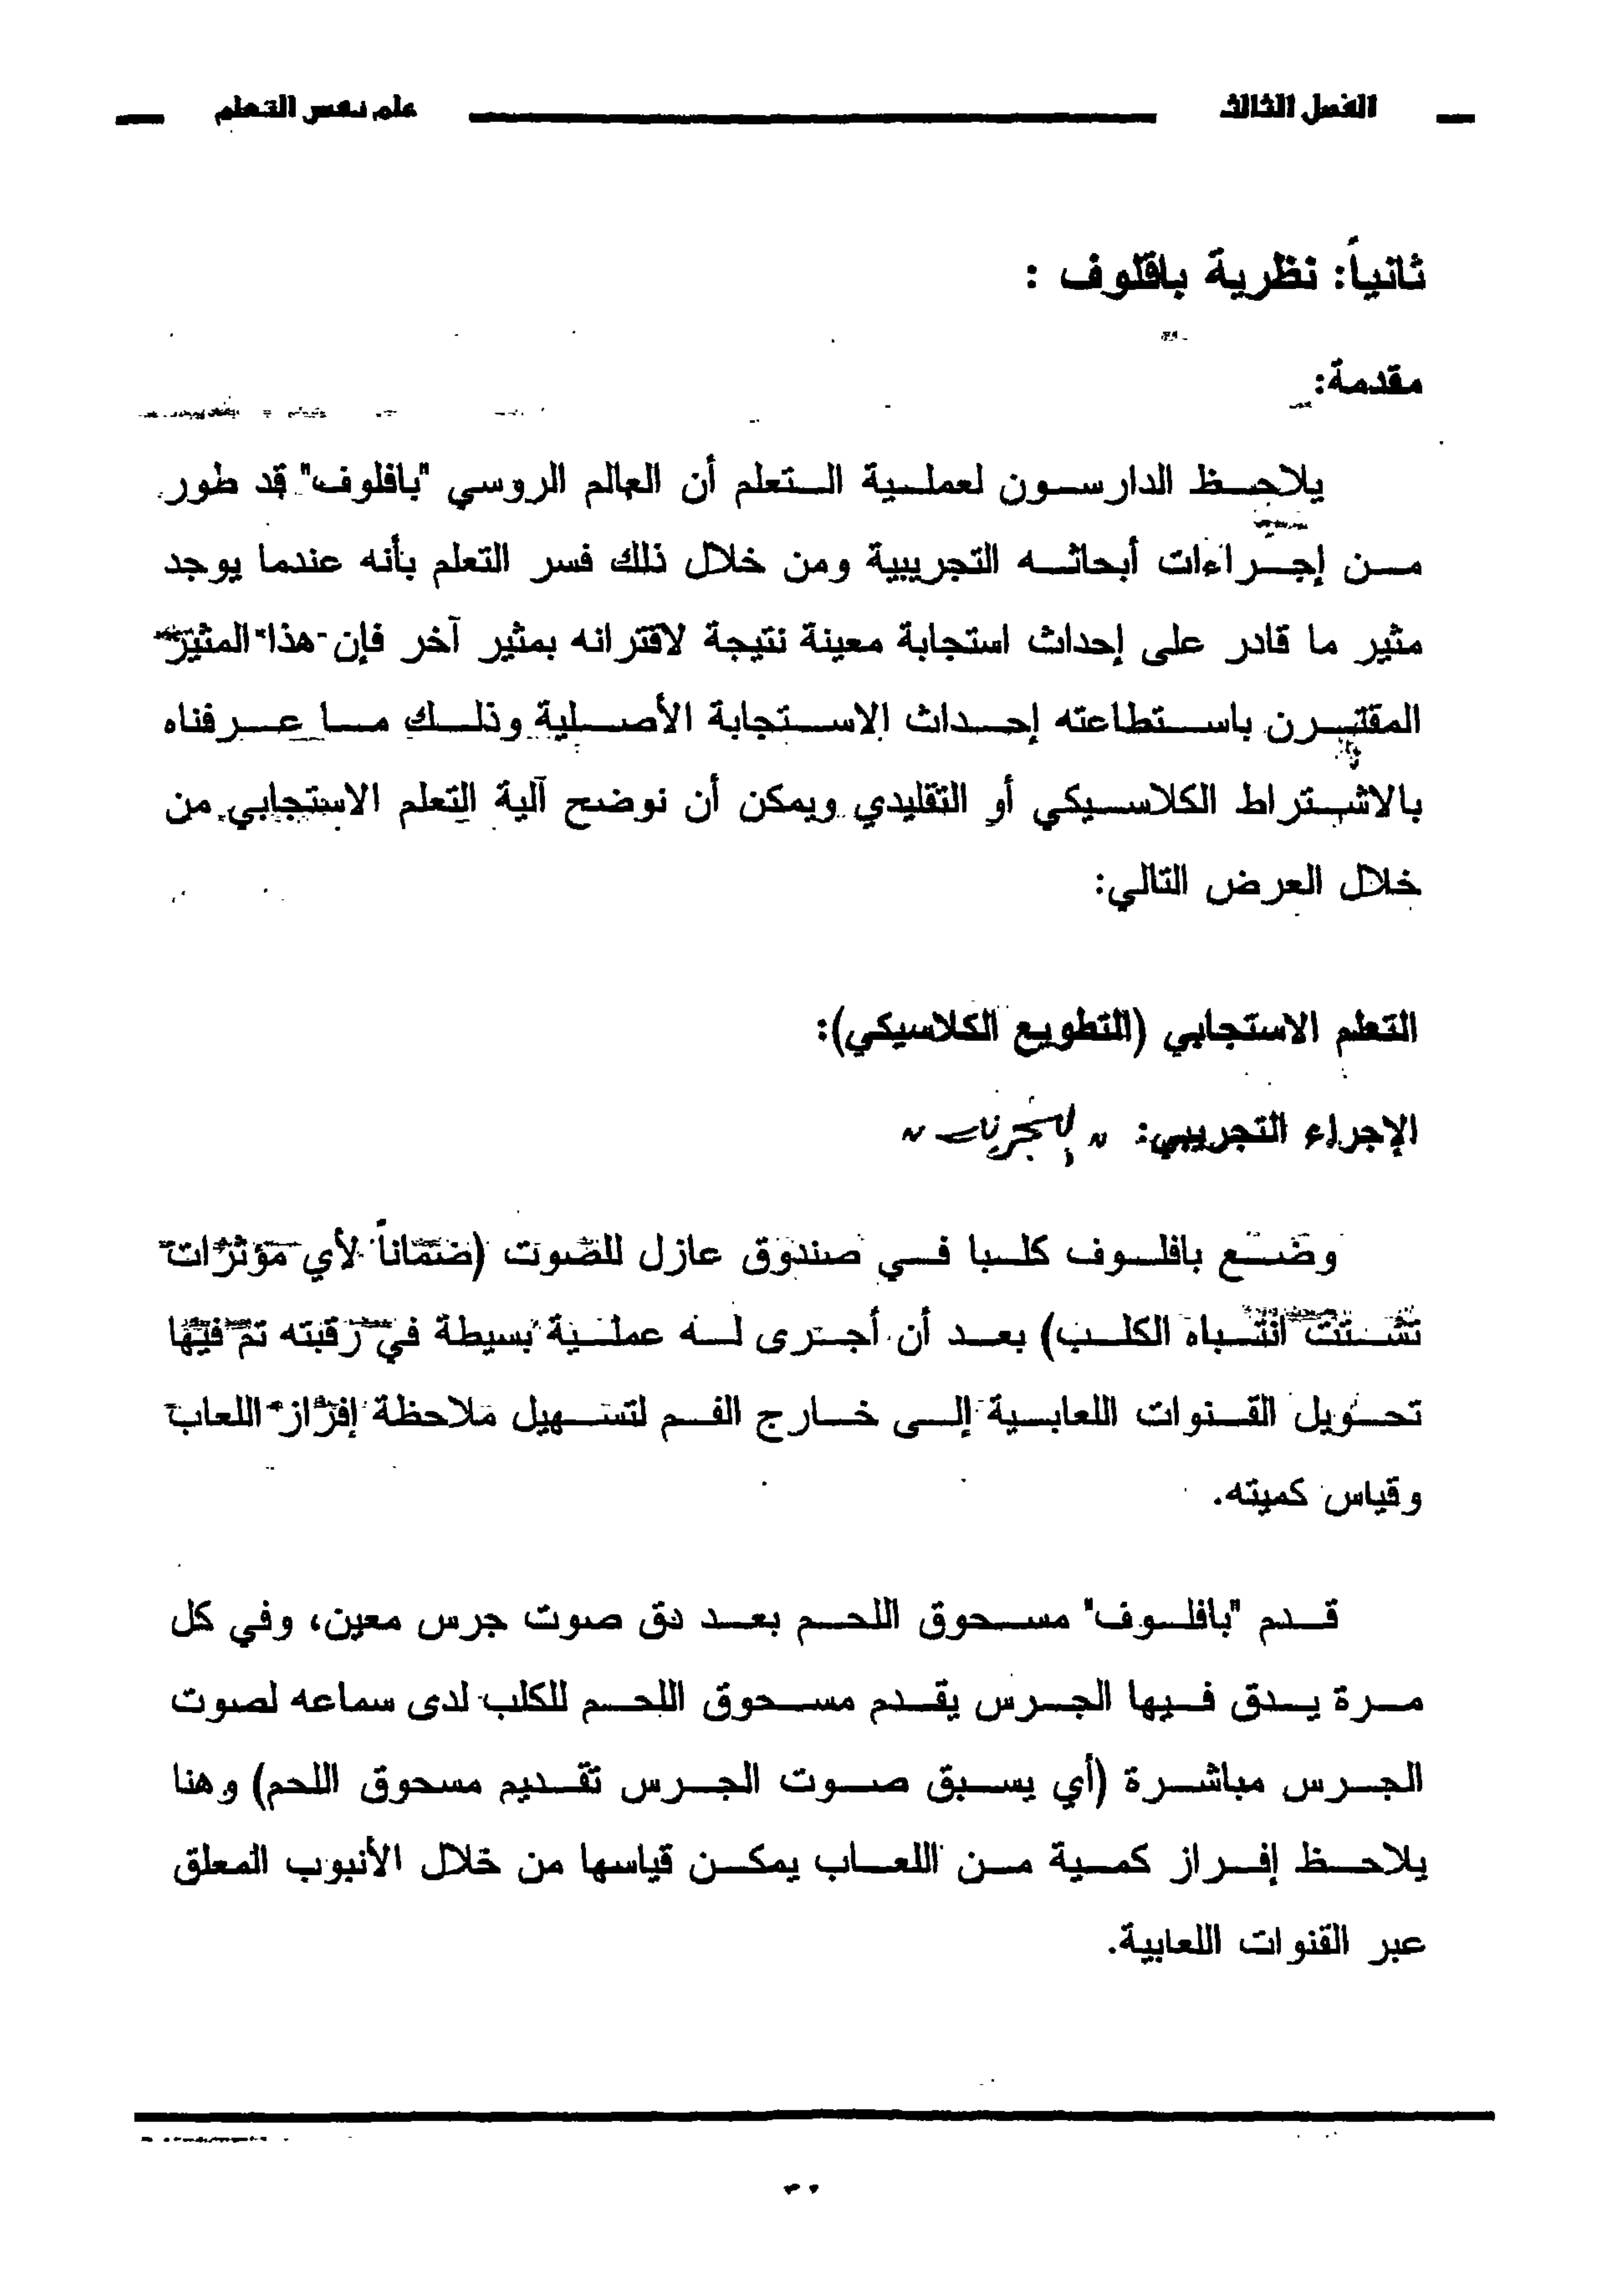 الفصل الثالث
علم نفس التعلم
ثانياً: نظرية بافلوف :
مقدمة:
يلاحظ الدارسون لعملية التعلم أن العالم الروسي "بافلوف" قد طور
من إجراءات أبحاثه التجريبية ومن خلال ذلك فسر التعلم بأنه عندما يوجد
مثير ما قادر على إحداث استجابة معينة نتيجة لاقترانه بمثير آخر فإن هذا المثير
المقترن باستطاعته إحداث الاستجابة الأصلية وذلك ما عرفناه
بالاشتراط الكلاسيكي أو التقليدي ويمكن أن نوضح آلية التعلم الاستجابي من
خلال العرض التالي:
التعلم الاستجابي (التطويع الكلاسيكي):
الإجراء التجريبي:
وضع بافلوف كلبا في صندوق عازل للصوت (ضماناً لأي مؤثرات
تشتت انتباه الكلب) بعد أن أجرى له عملية بسيطة في رقبته تم فيها
تحويل القنوات اللعابية إلى خارج الفم لتسهيل ملاحظة إفراز اللعاب
وقياس كميته.
قدم "بافلوف" مسحوق اللحم بعد دق صوت جرس معين، وفي كل
مرة يدق فيها الجرس يقدم مسحوق اللحم للكلب لدى سماعه لصوت
الجرس مباشرة (أي يسبق صوت الجرس تقديم مسحوق اللحم) وهنا
يلاحظ إفراز كمية من اللعاب يمكن قياسها من خلال الأنبوب المعلق
عبر القنوات اللعابية.